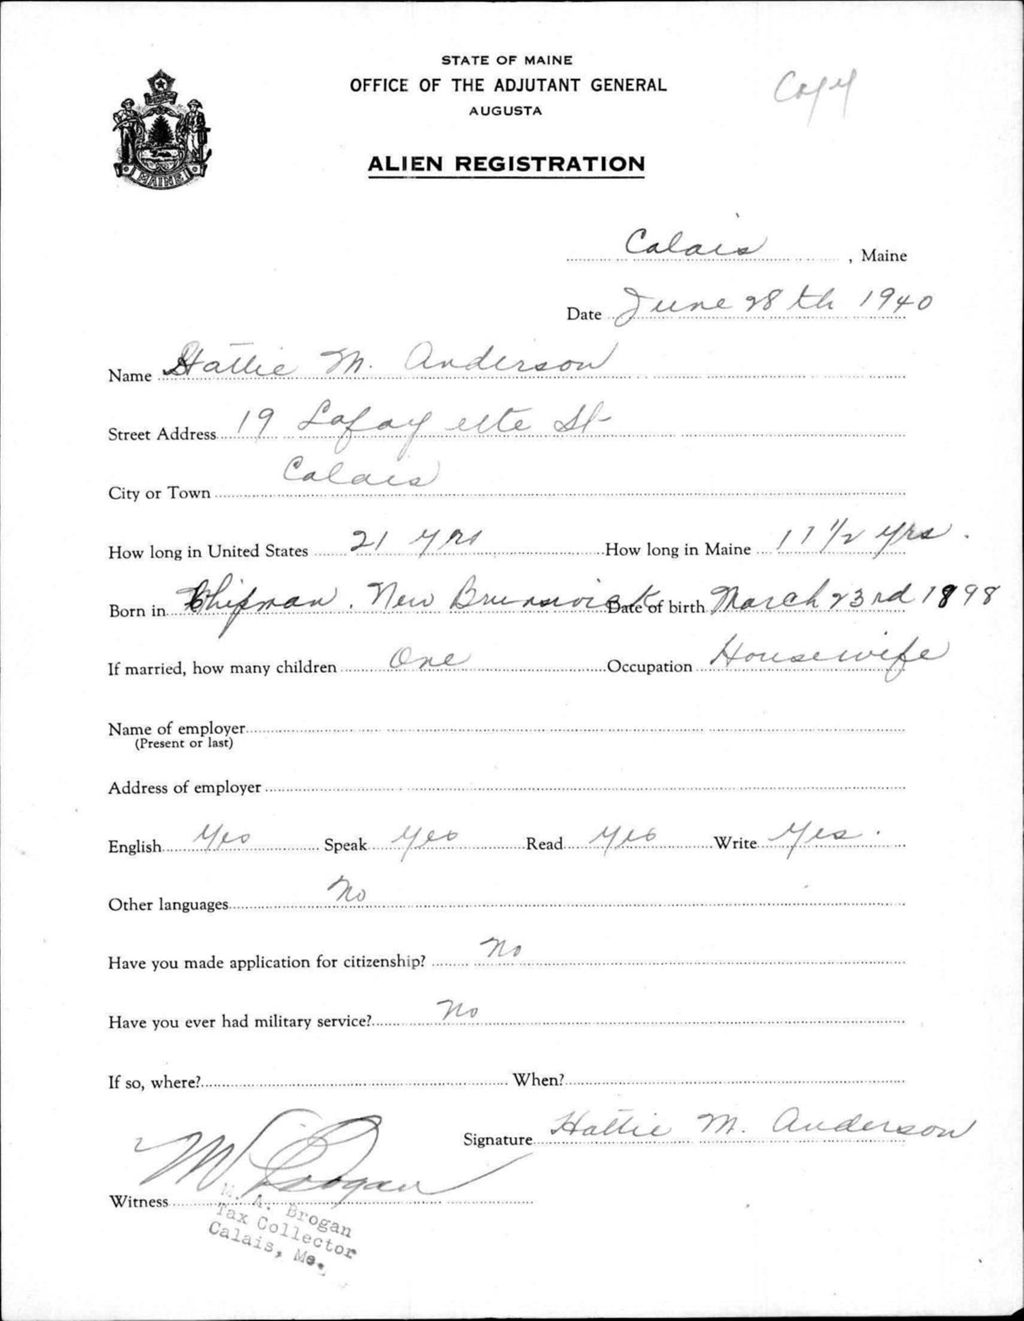 STATE OF MAINE
OFFICE OF THE ADJUTANT GENERAL
AUGUSTA
Copy
ALIEN REGISTRATION
MAINE
Calais, Maine
Date June 28th 1940
Name Hattie M. Anderson
Street Address 19 Lafayette St
City or Town Calais
How long in United States 21 yrs How long in Maine 11 1/2 yrs.
Born in Chipman, New Brunswick Date of birth March 23rd 1898
If married, how many children One Occupation Housewife
Name of employer
(Present or last)
Address of employer
English Yes Speak Yes Read Yes Write Yes.
Other languages No
Have you made application for citizenship? No
Have you ever had military service? No
If so, where? When?
Signature Hattie M. Anderson
Witness M A Brogan
M. A. Brogan
Tax Collector
Calais, Me.